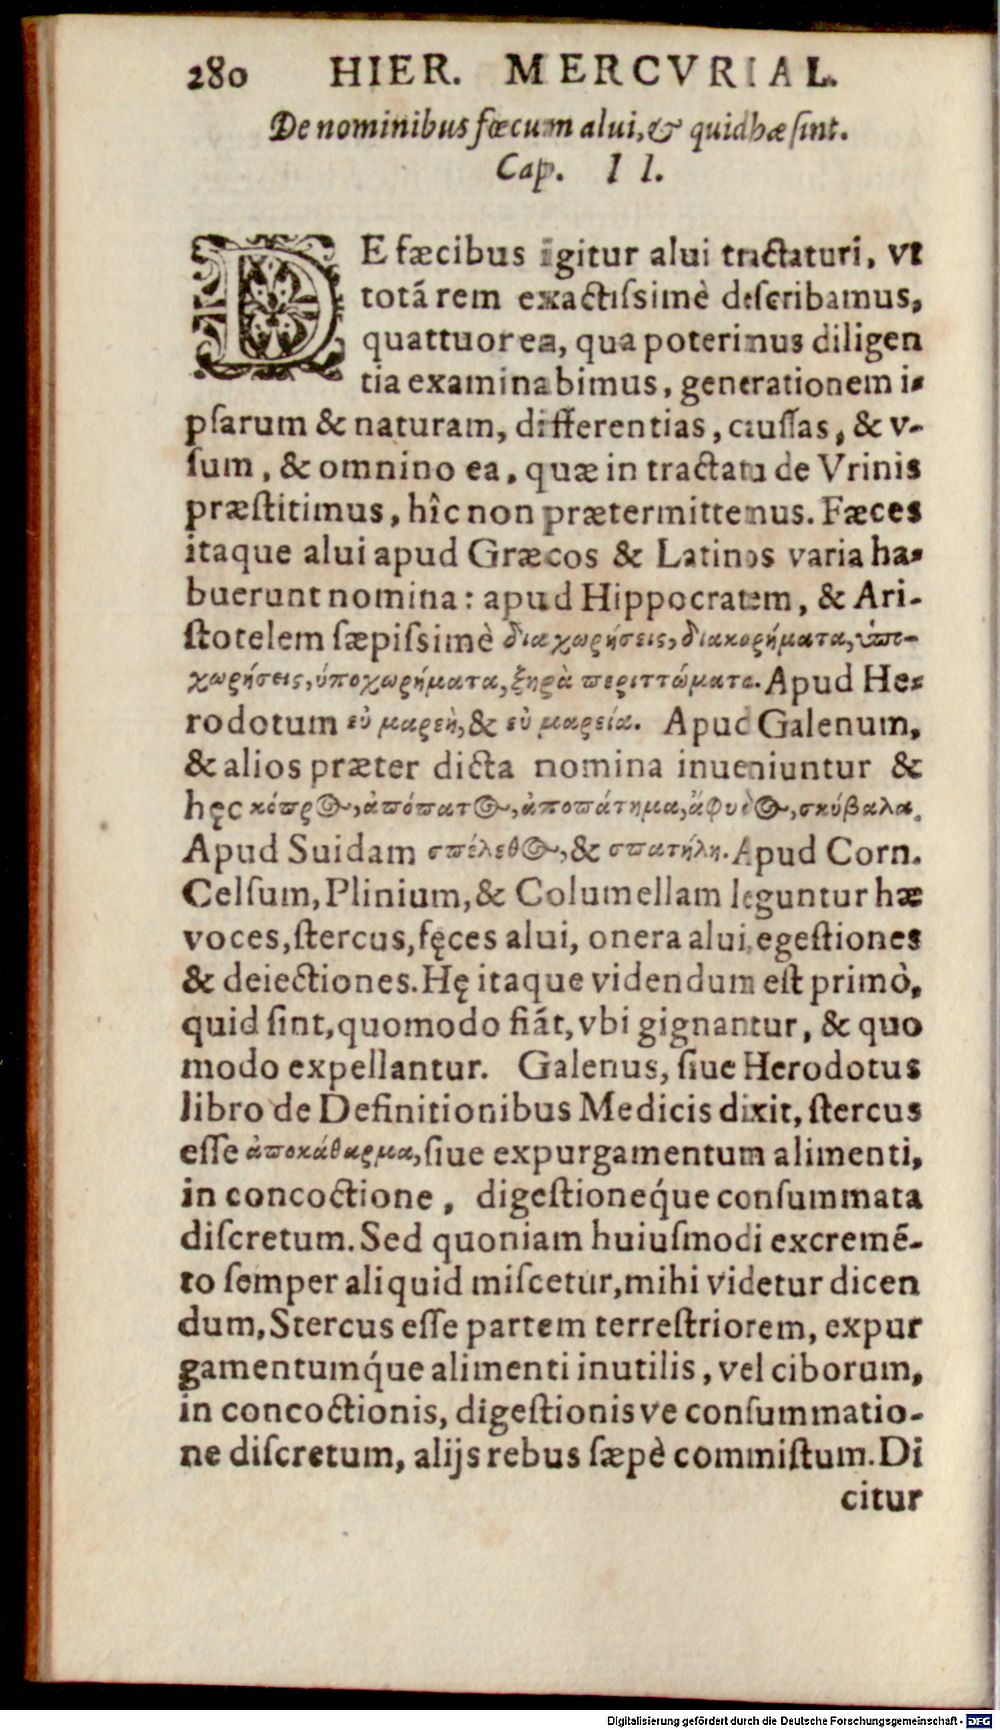 280 HIER. MERCVRIAL.
De nominibus fœcum alui, & quid hæ ſint.
Cap. II.
DE fæcibus igitur alui tractaturi, vt
totã rem exactiſsimè deſcribamus,
quattuor ea, qua poterimus diligen
tia examinabimus, generationem i-
pſarum & naturam, differentias, cauſſas, & v-
ſum, & omnino ea, quæ in tractatu de Vrinis
præſtitimus, hîc non prætermittemus. Fæces
itaque alui apud Græcos & Latinos varia ha-
buerunt nomina: apud Hippocratem, & Ari-
ſtotelem ſæpiſsimè διαχωρήσεις, διακορήματα, ὑπο-
χωρήσεις, ὑποχωρήματα, ξηρὰ περιττώματα. Apud He-
rodotum εὐ μαρεὴ, & εὐ μαρεία. Apud Galenum,
& alios præter dicta nomina inueniuntur &
hęc κόπρος, ἀπόπατος, ἀποπάτημα, ἄφυὲος, σκύβαλα.
Apud Suidam σπέλεθος, & σπατήλη. Apud Corn.
Celſum, Plinium, & Columellam leguntur hæ
voces, ſtercus, fęces alui, onera alui, egeſtiones
& deiectiones. Hę itaque videndum eſt primò,
quid ſint, quomodo fiãt, vbi gignantur, & quo
modo expellantur. Galenus, ſiue Herodotus
libro de Definitionibus Medicis dixit, ſtercus
eſſe ἀποκάθαρμα, ſiue expurgamentum alimenti,
in concoctione, digeſtioneq́ue conſummata
diſcretum. Sed quoniam huiuſmodi excremẽ-
to ſemper aliquid miſcetur, mihi videtur dicen
dum, Stercus eſſe partem terreſtriorem, expur
gamentumq́ue alimenti inutilis, vel ciborum,
in concoctionis, digeſtionisve conſummatio-
ne diſcretum, alijs rebus ſæpè commiſtum. Di
citur
Digitalisierung gefördert durch die Deutsche Forschungsgemeinschaft - DFG